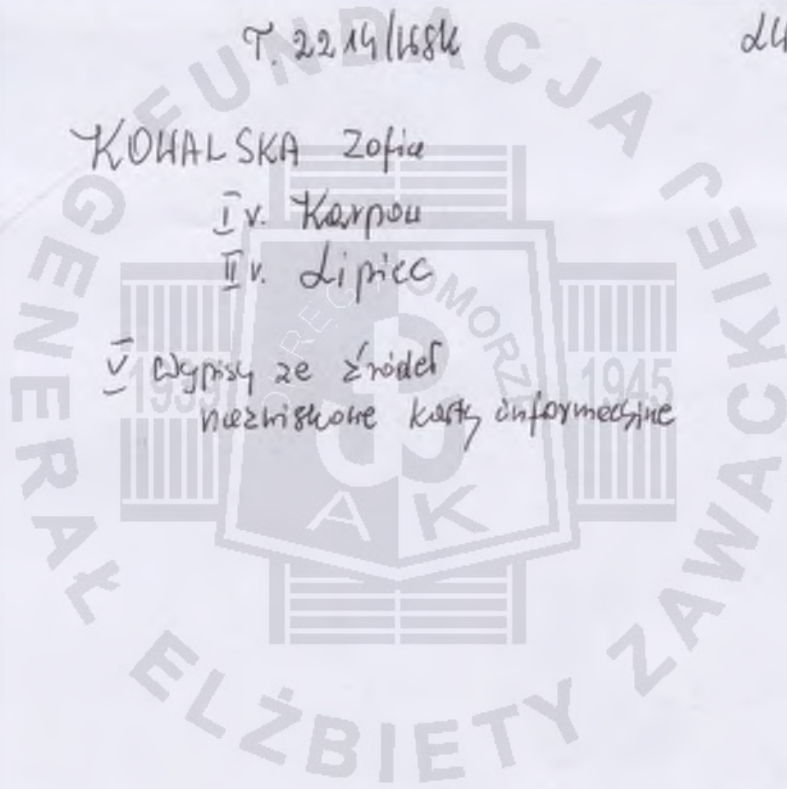 T. 2214/WSK
KOWALSKA Zofia
I v. Karpou
II v. Lipiec
V Wypisy ze źródeł
nazwiskowe karty informacyjne
FUNDACJA GENERAŁ ELŻBIETY ZAWACKIEJ
OKRĘG POMORZE
1939 1945
AK